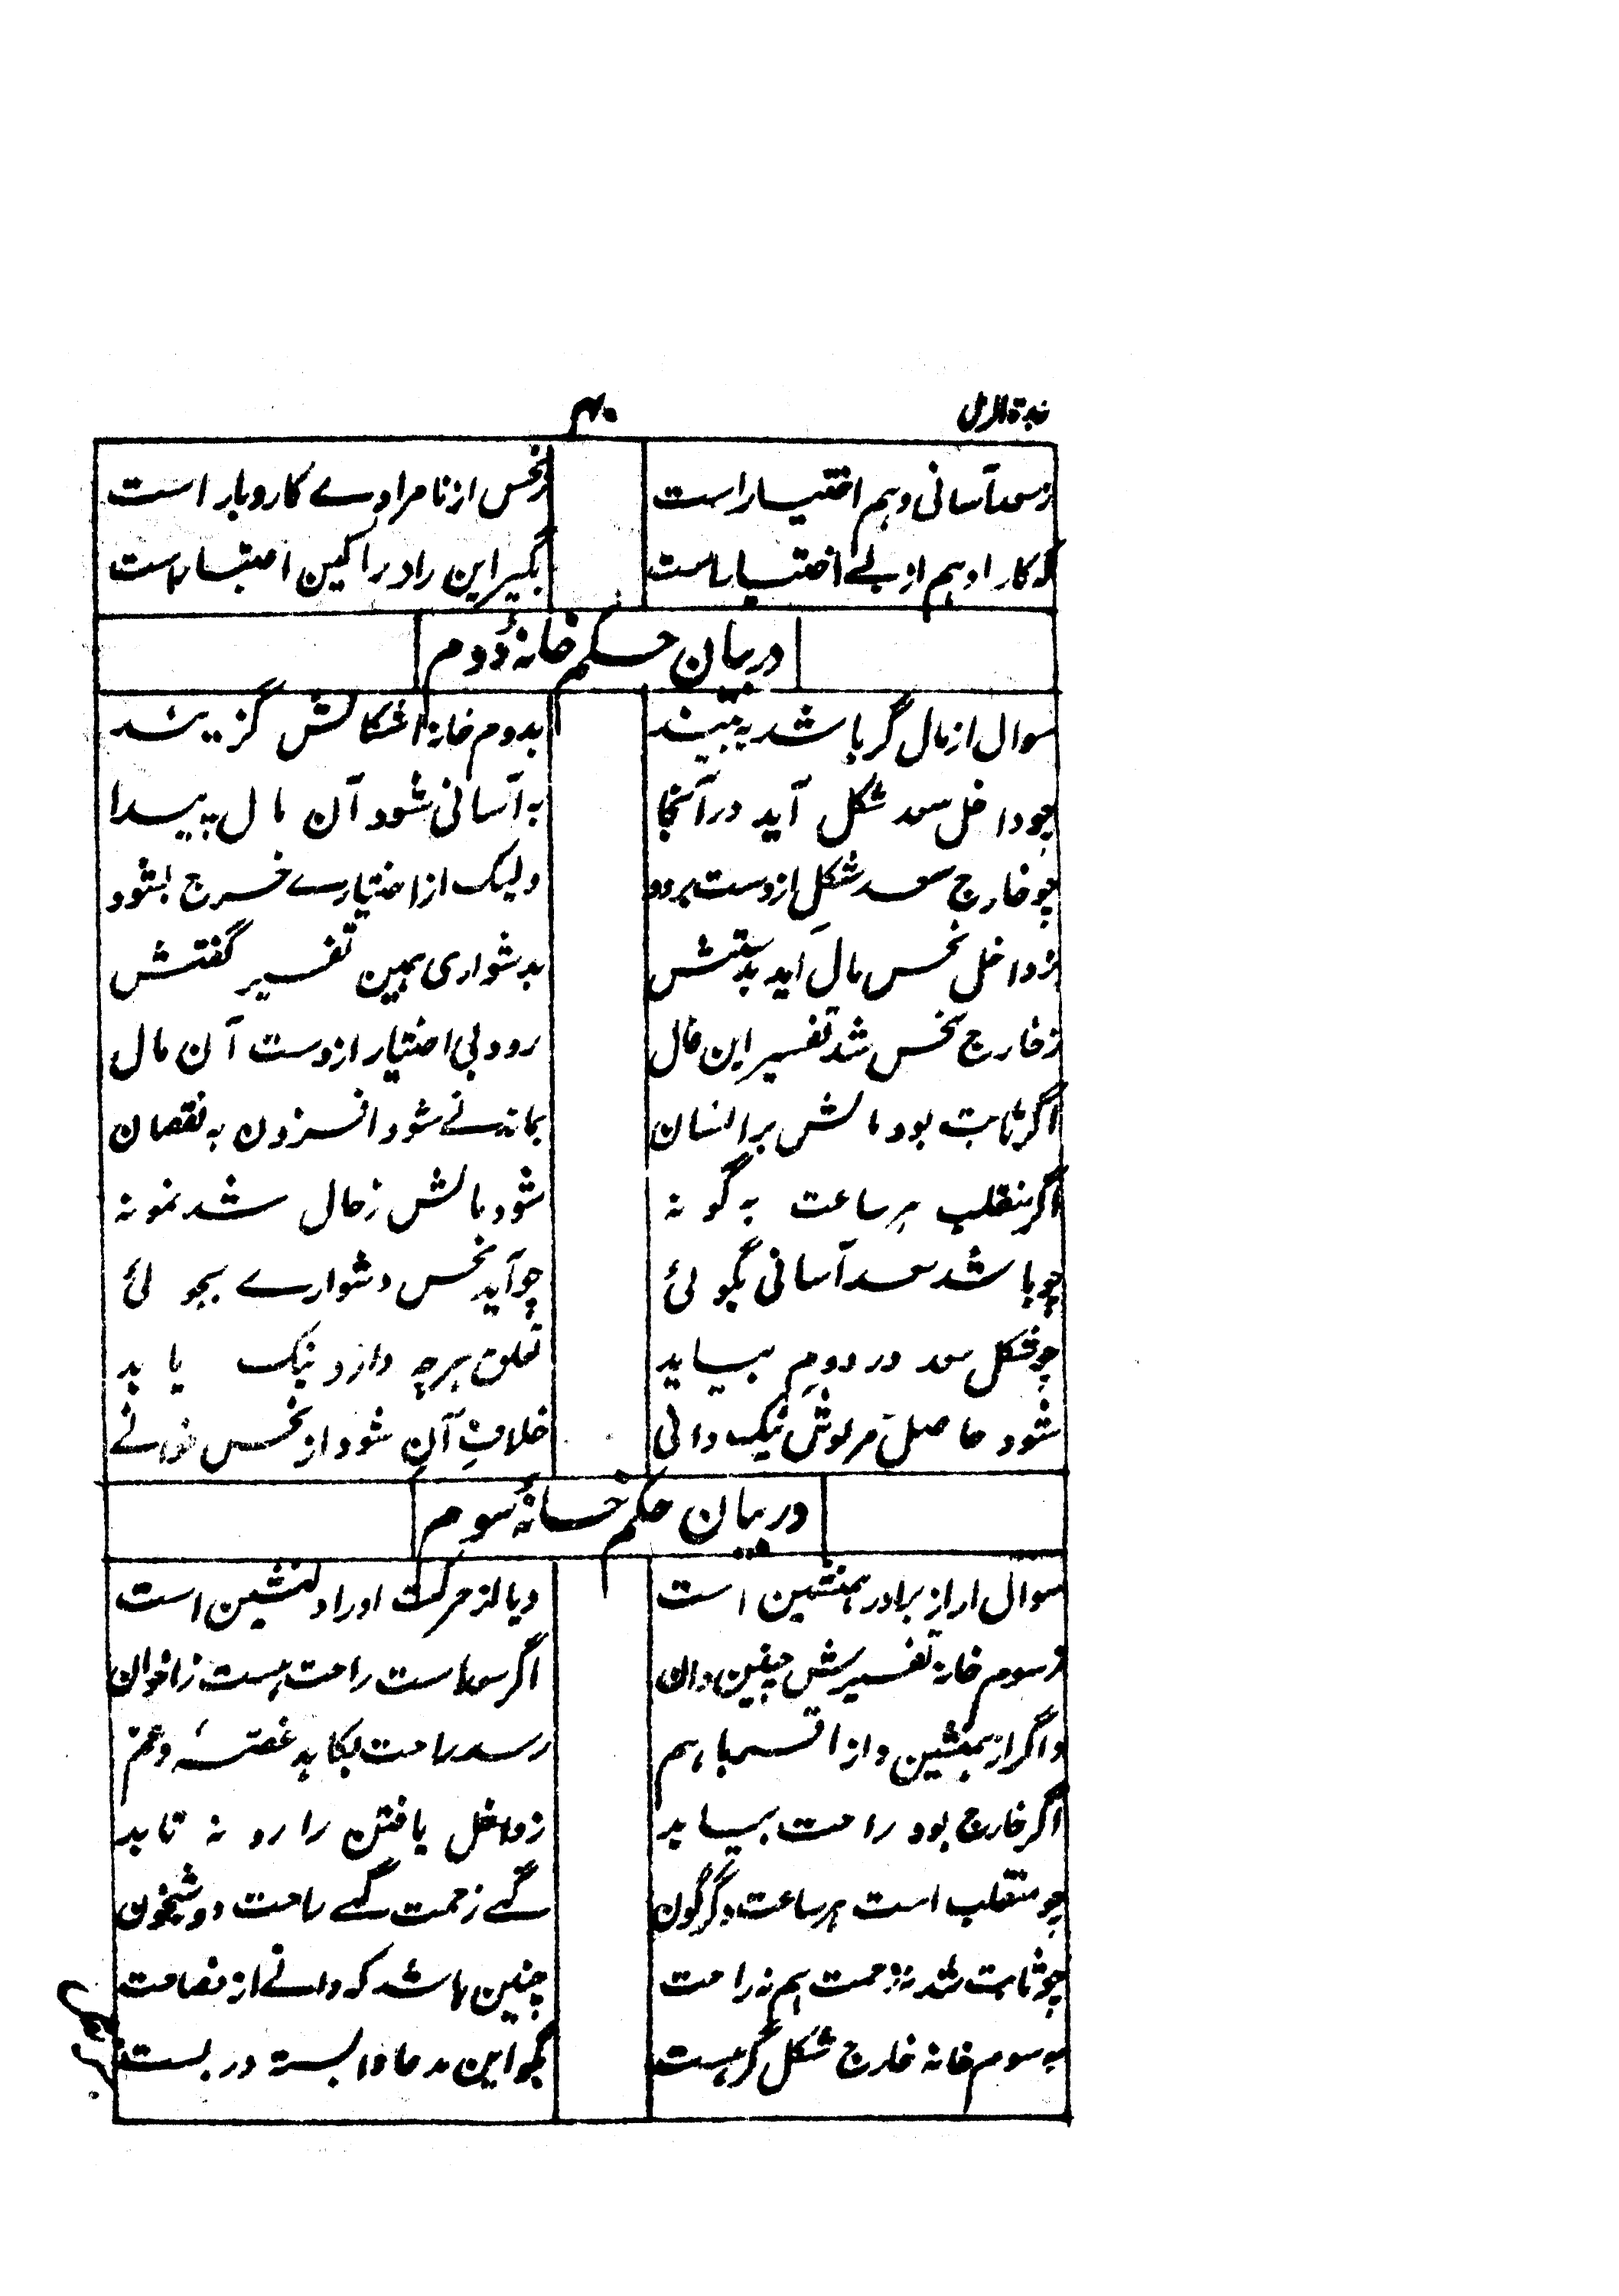 زبدة الرمل
۴۰
ز سعد آسانی و هم اختیار است
ز نحس از نامرادے کاروبار است
کار او هم از بے اختیار است
بگیر این راد را کین اعتبار است
در بیان حکم خانۂ دوم
سوال از مال گر باشد به بیند
بدوم خانه اشکالش گزیند
چو داخل سعد شکل آید در آنجا
به آسانی شود آن مال پیدا
چو خارج سعد شکل از دست برود
ولیک از اختیارے خرج بشود
ز داخل نحس مال آید بدستش
بدشواری همین تفسیر گفتش
ز خارج نحس شد تفسیر این فال
رود بی اختیار از دست آن مال
اگر ثابت بود مالش بر انسان
بماند نے شود افزون به نقصان
اگر منقلب هر ساعت به گونه
شود مالش ز حال شد نمونه
چو باشد سعد آسانی بگوئی
چو آید نحس دشوارے بجوئی
چو شکل سعد در دوم بیاید
تعلق هر چه دارد نیک یابد
شود حاصل نیک دانی
خلاف آن شود از نحس خوانے
در بیان حکم خانۂ سوم
سوال ار از برادر همنشین است
و یا از حرکت او را دلنشین است
ز سوم خانه تفسیرش چنین دان
اگر سعد است راحت هست ز اخوان
و اگر از همنشین و از اقربا هم
رسد راحت بکاهد غصّه و غم
اگر خارج بود راحت بیابد
ز داخل یافتن را رو نه تابد
چو منقلب است هر ساعت دگرگون
گہے زحمت گہے راحت دو شیخون
چو ثابت شد نه زحمت هم نه راحت
چنین باشد که دانے از فصاحت
به سوم خانه خارج شکل گر هست
بگو این مدعا وابسته در بست